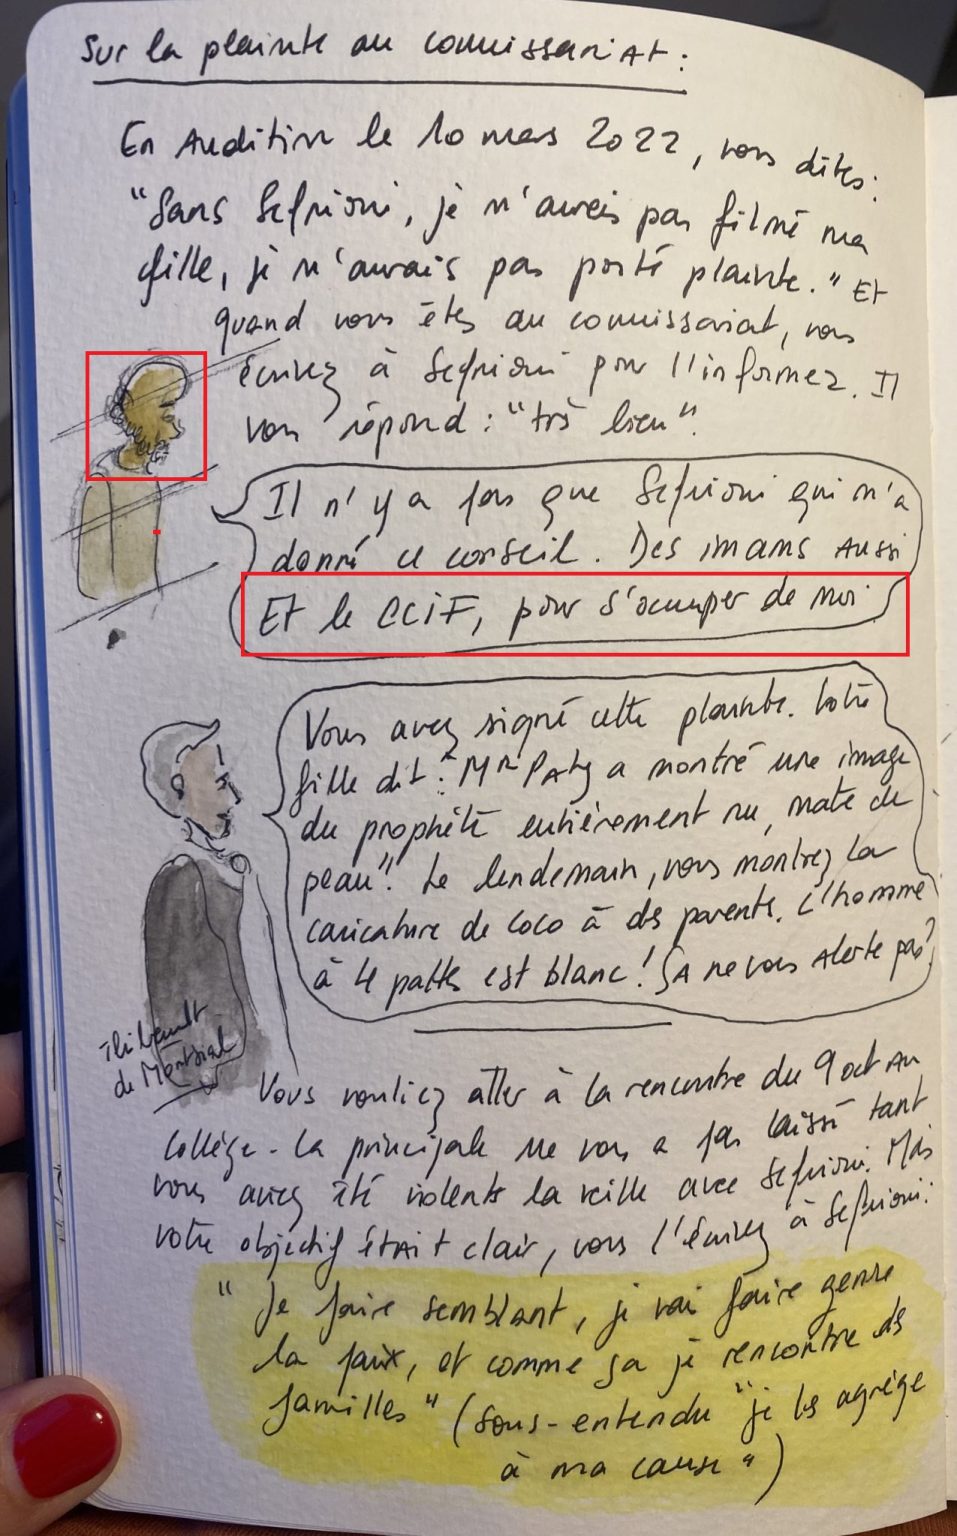 Sur la plainte au commissariat :
En Audition le 10 mars 2022, vous dites :
"Sans Sefrioui, je n'aurais pas filmé ma
fille, je n'aurais pas porté plainte." Et
quand vous êtes au commissariat, vous
écrivez à Sefrioui pour l'informer. Il
vous répond : "très bien".
Il n'y a pas que Sefrioui qui m'a
donné ce conseil. Des imams aussi
Et le CCIF, pour s'occuper de moi
Vous avez signé cette plainte. Votre
fille dit : "Mr Paty a montré une image
du prophète entièrement nu, mate de
peau". Le lendemain, vous montrez la
caricature de Coco à des parents. L'homme
à 4 pattes est blanc ! ça ne vous alerte pas ?
Thibault
de Montbrial
Vous vouliez aller à la rencontre du 9 oct au
collège. La principale ne vous a pas laissé tant
vous aviez été violents la veille avec Sefrioui. Mais
votre objectif était clair, vous l'écrivez à Sefrioui :
"Je faire semblant, je vai faire genre
la paix, et comme ça je rencontre des
familles" (sous-entendu "je les agrège
à ma cause")